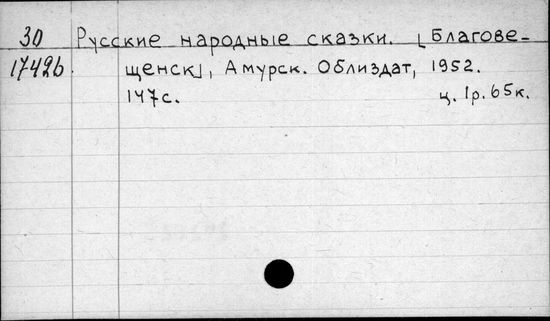 30 Русские народные сказки. [Благове-
17426. щенск], Амурск. Облиздат, 1952.
147с. ц. 1р. 65к.